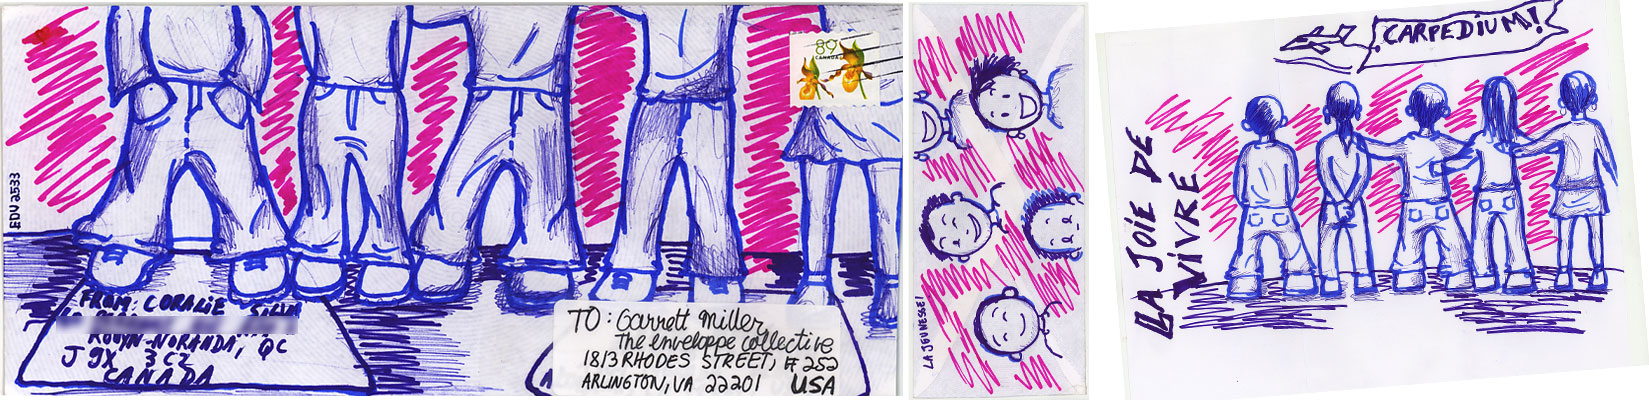 89
CANADA
EDV2533
FROM: CORALIE
ROUYN-NORANDA, QC
J9X 3C2
CANADA
TO: Garrett Miller
The enveloppe collective
1813 RHODES STREET, # 252
ARLINGTON, VA 22201 USA
LA JEUNESSE!
CARPEDIUM!
LA JOIE DE
VIVRE